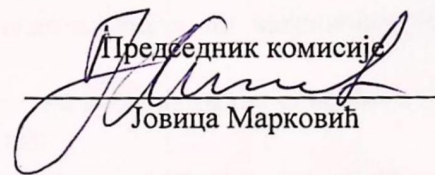 Председник комисије
Јовица Марковић